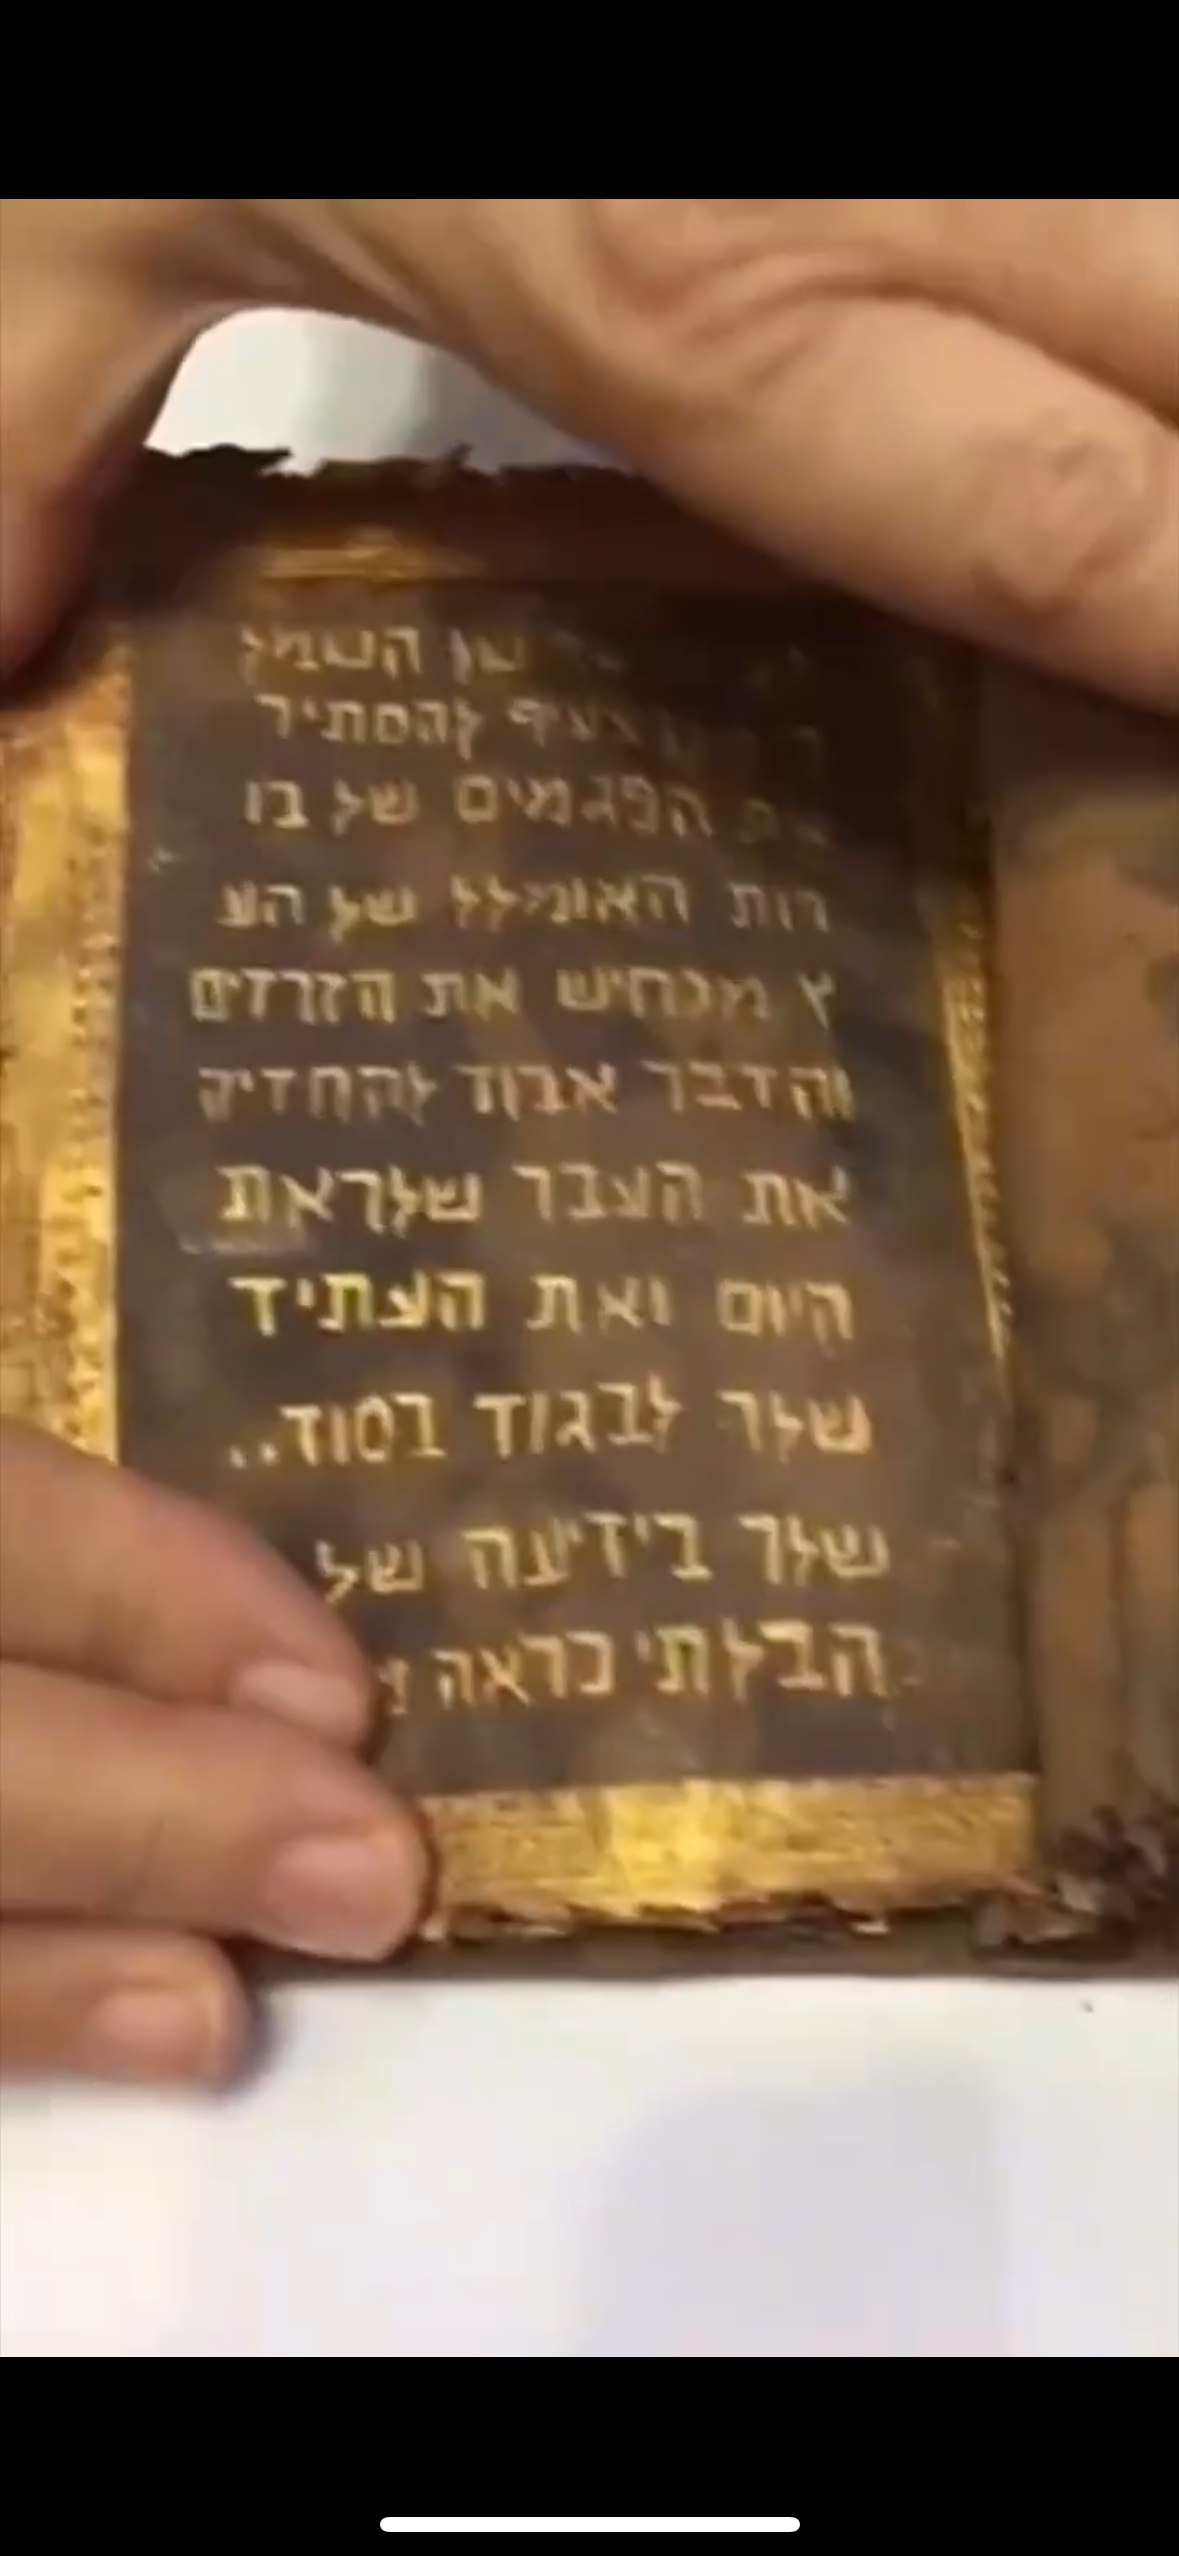 של השמץ
צעיף להסתיר
את הפגמים של בו
רות האומלל של הע
ץ מכחיש את הזרדים
והדבר אבוד להחזיק
את העבר שלראת
היום ואת העתיד
שלך לבגוד בסוד..
שלך בידיעה של
הבלתי כראה